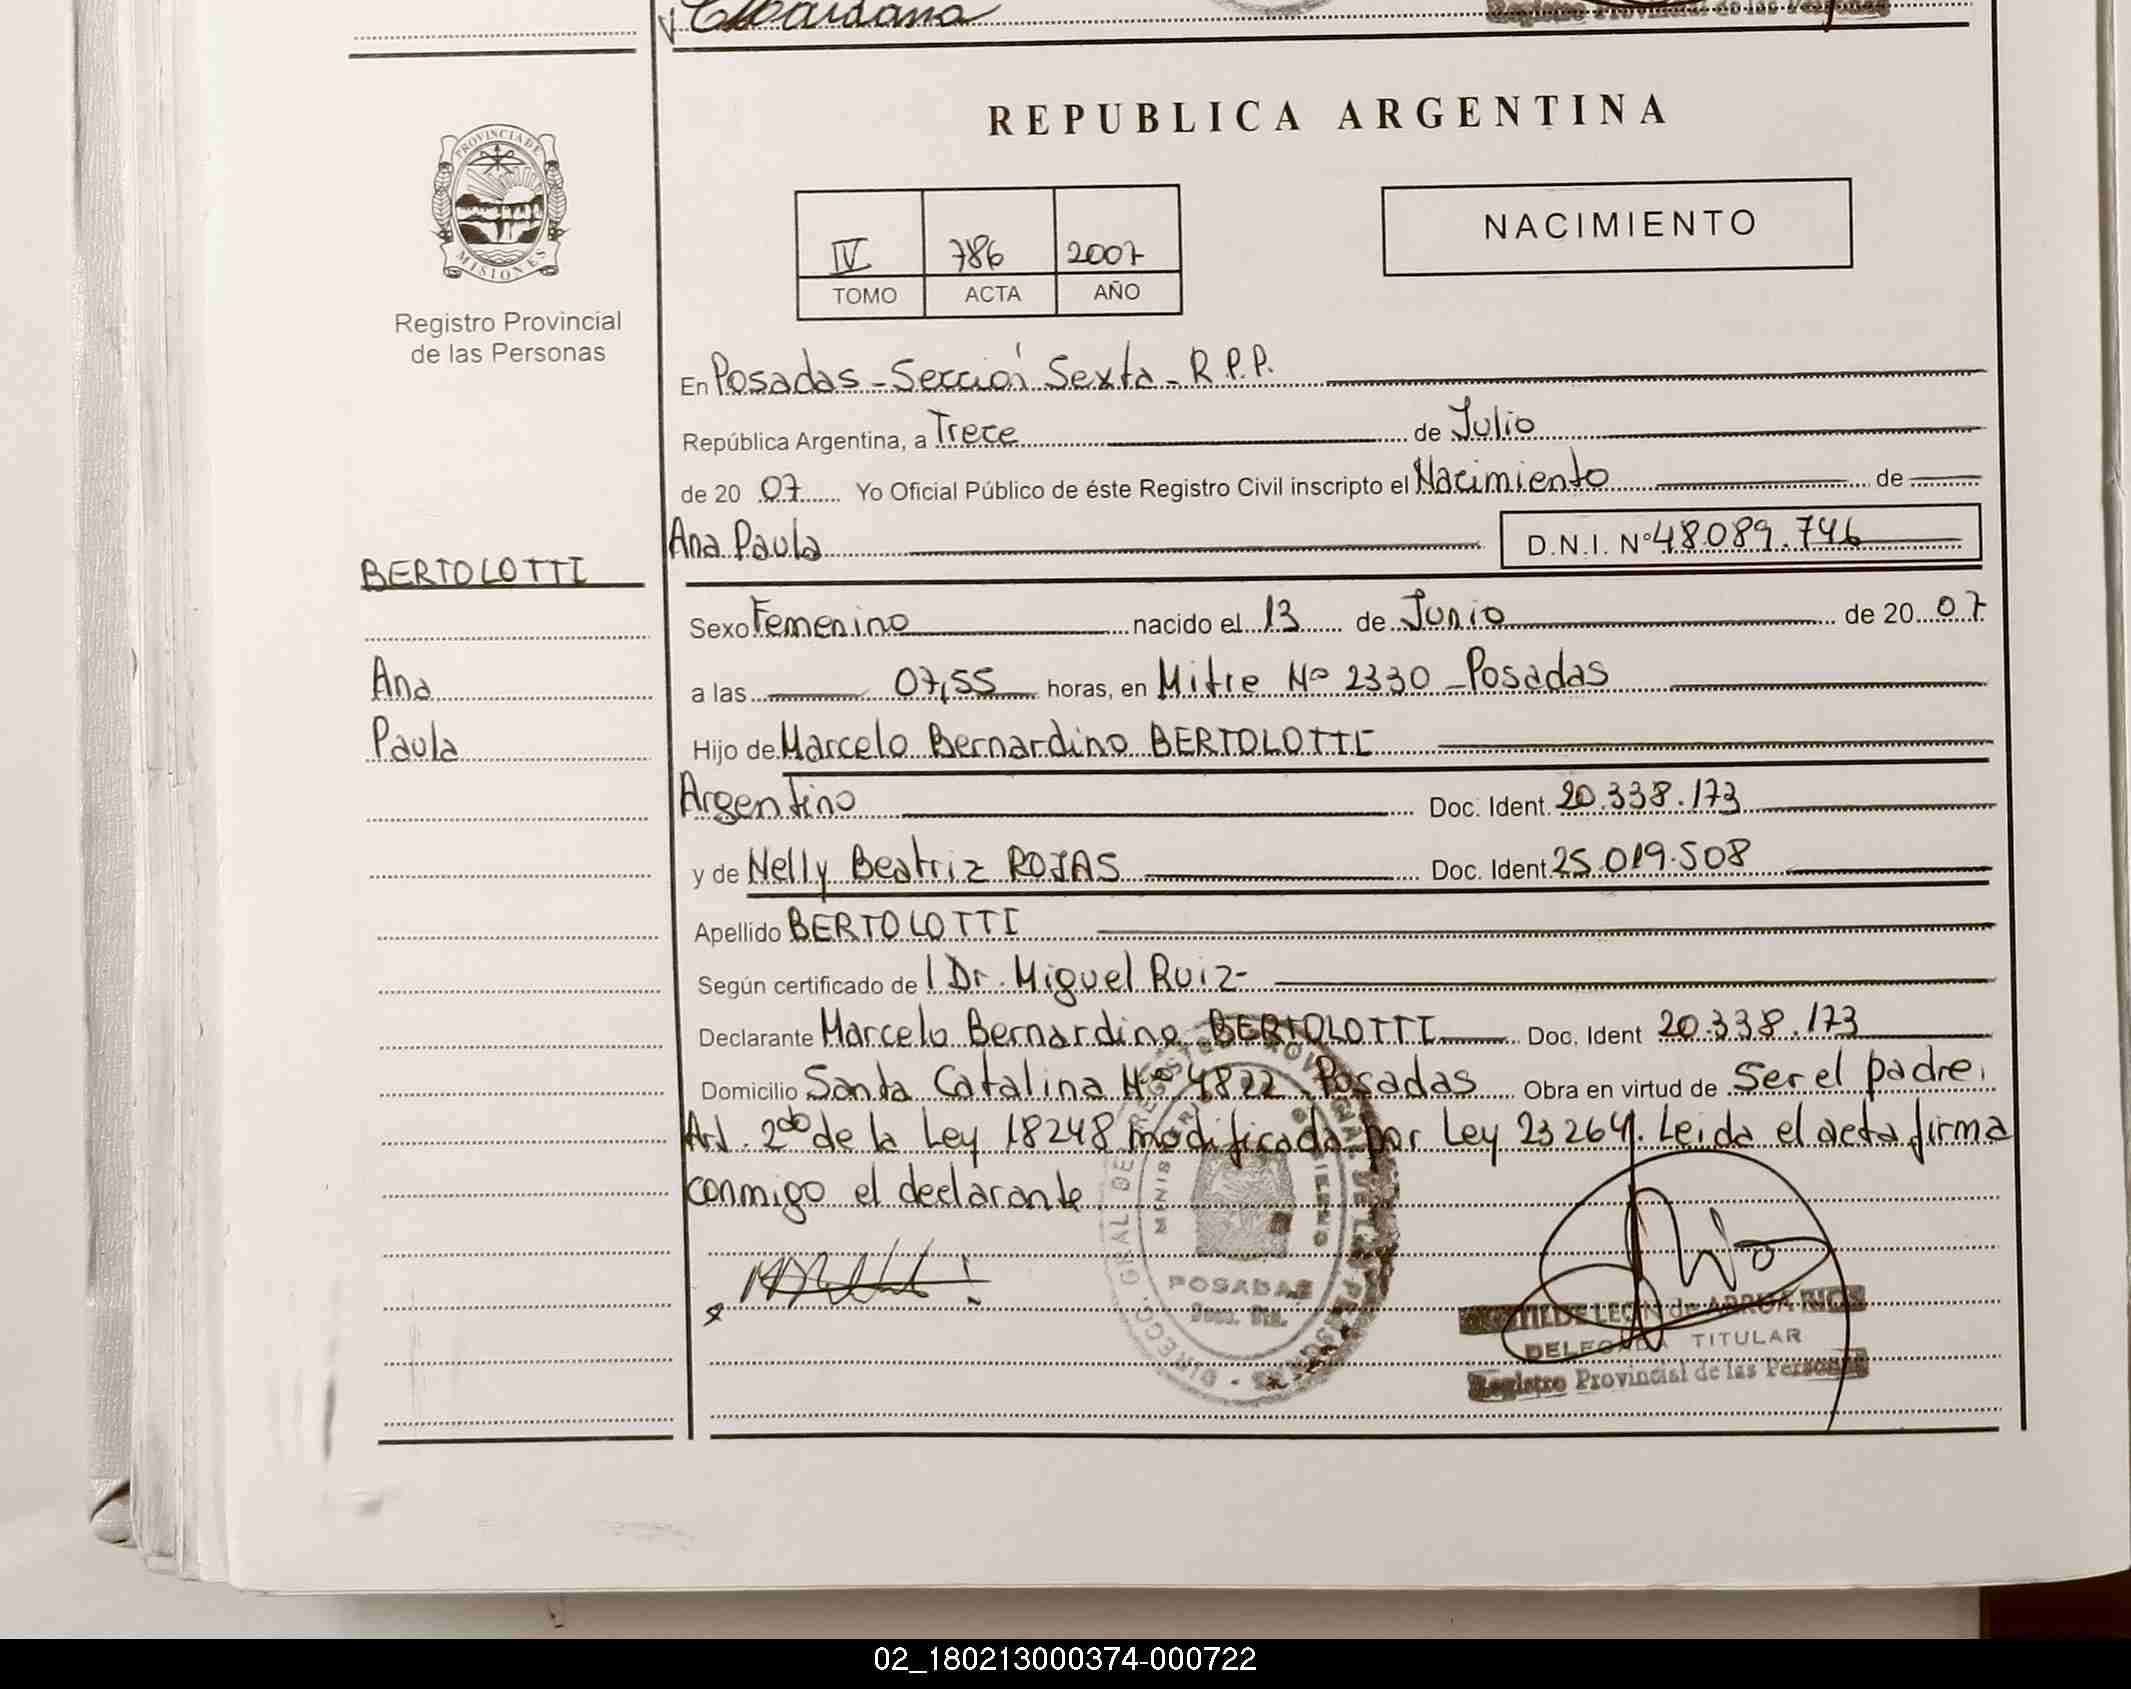 Registro Provincial de las Personas
REPUBLICA ARGENTINA
PROVINCIA DE
MISIONES
Registro Provincial
de las Personas
IV 786 2007
TOMO ACTA AÑO
NACIMIENTO
En Posadas - Sección Sexta - R.P.P.
República Argentina, a Trece de Julio
de 20 07 Yo Oficial Público de éste Registro Civil inscripto el Nacimiento de
Ana Paula D.N.I. Nº 48.089.746
BERTOLOTTI
Sexo Femenino nacido el 13 de Junio de 20 07
Ana
a las 07,55 horas, en Mitre Nº 2330 - Posadas
Paula
Hijo de Marcelo Bernardino BERTOLOTTI
Argentino Doc. Ident. 20.338.173
y de Nelly Beatriz ROJAS Doc. Ident. 25.019.508
Apellido BERTOLOTTI
Según certificado de l Dr. Miguel Ruiz-
Declarante Marcelo Bernardino BERTOLOTTI Doc. Ident 20.338.173
Domicilio Santa Catalina Nº 4822 Posadas Obra en virtud de Ser el padre.
Art. 2do de la Ley 18248 modificada por Ley 23264. Leida el acta firma
conmigo el declarante
POSADAS
Secc. 6ta.
LEON de ARRUA RIOS
DELEGADA TITULAR
Registro Provincial de las Personas
02_180213000374-000722